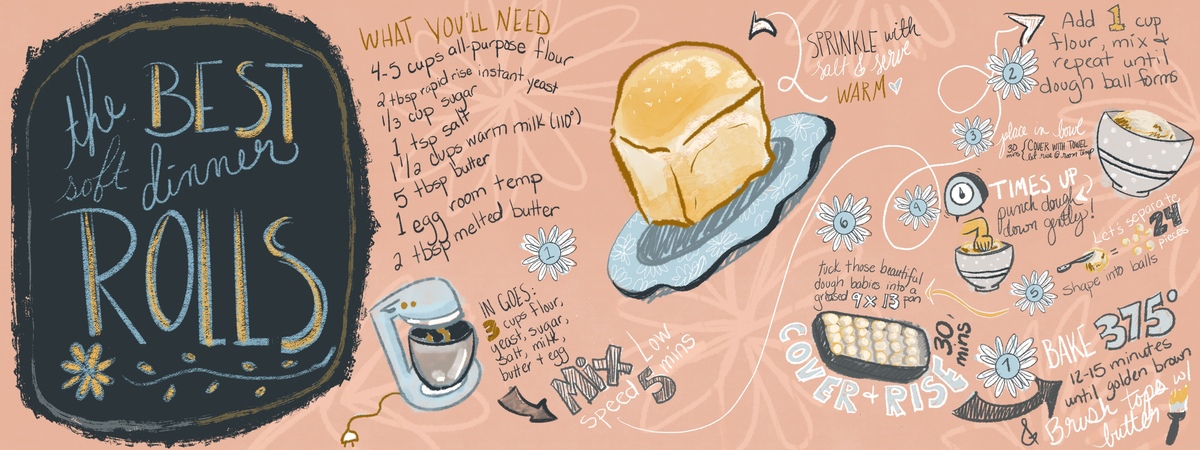 the BEST
soft dinner
ROLLS
WHAT YOU'LL NEED
4-5 cups all-purpose flour
2 tbsp rapid rise instant yeast
1/3 cup sugar
1 tsp salt
1 1/2 cups warm milk (110°)
5 tbsp butter
1 egg room temp
2 tbsp melted butter
1
IN GOES:
3 cups flour,
yeast, sugar,
salt, milk,
butter + egg
Mix Low
speed 5 mins
2
Add 1 cup
flour, mix +
repeat until
dough ball forms
3
place in bowl
30 mins { COVER WITH TOWEL
let rise @ room temp
4
TIMES UP
punch dough
down gently!
5
Let's separate
24
pieces
shape into balls
6
tuck those beautiful
dough babies into a
greased 9x13 pan
COVER + RISE
30 mins
7
BAKE 375°
12-15 minutes
until golden brown
& Brush tops w/
butter
SPRINKLE with
salt & serve
WARM